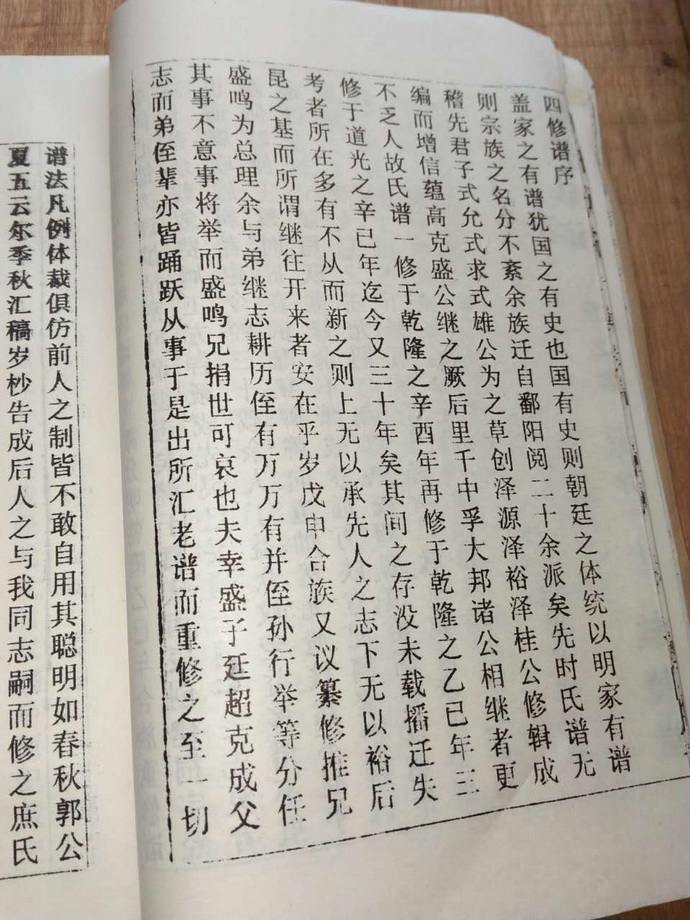 四修谱序
盖家之有谱犹国之有史也国有史则朝廷之体统以明家有谱
则宗族之名分不紊余族迁自鄱阳阅二十余派矣先时氏谱无
稽先君子式允式求式雄公为之草创泽源泽裕泽桂公修辑成
编而增信蕴高克盛公继之厥后里千中孚大邦诸公相继者更
不乏人故氏谱一修于乾隆之辛酉年再修于乾隆之乙巳年三
修于道光之辛巳年迄今又三十年矣其间之存没未载播迁失
考者所在多有不从而新之则上无以承先人之志下无以裕后
昆之基而所谓继往开来者安在乎岁戊申合族又议纂修推兄
盛鸣为总理余与弟继志耕历侄有万万有并侄孙行举等分任
其事不意事将举而盛鸣兄捐世可哀也夫幸盛子廷超克成父
志而弟侄辈亦皆踊跃从事于是出所汇老谱而重修之至一切
谱法凡例体裁俱仿前人之制皆不敢自用其聪明如春秋郭公
夏五云尔季秋汇稿岁杪告成后人之与我同志嗣而修之庶氏